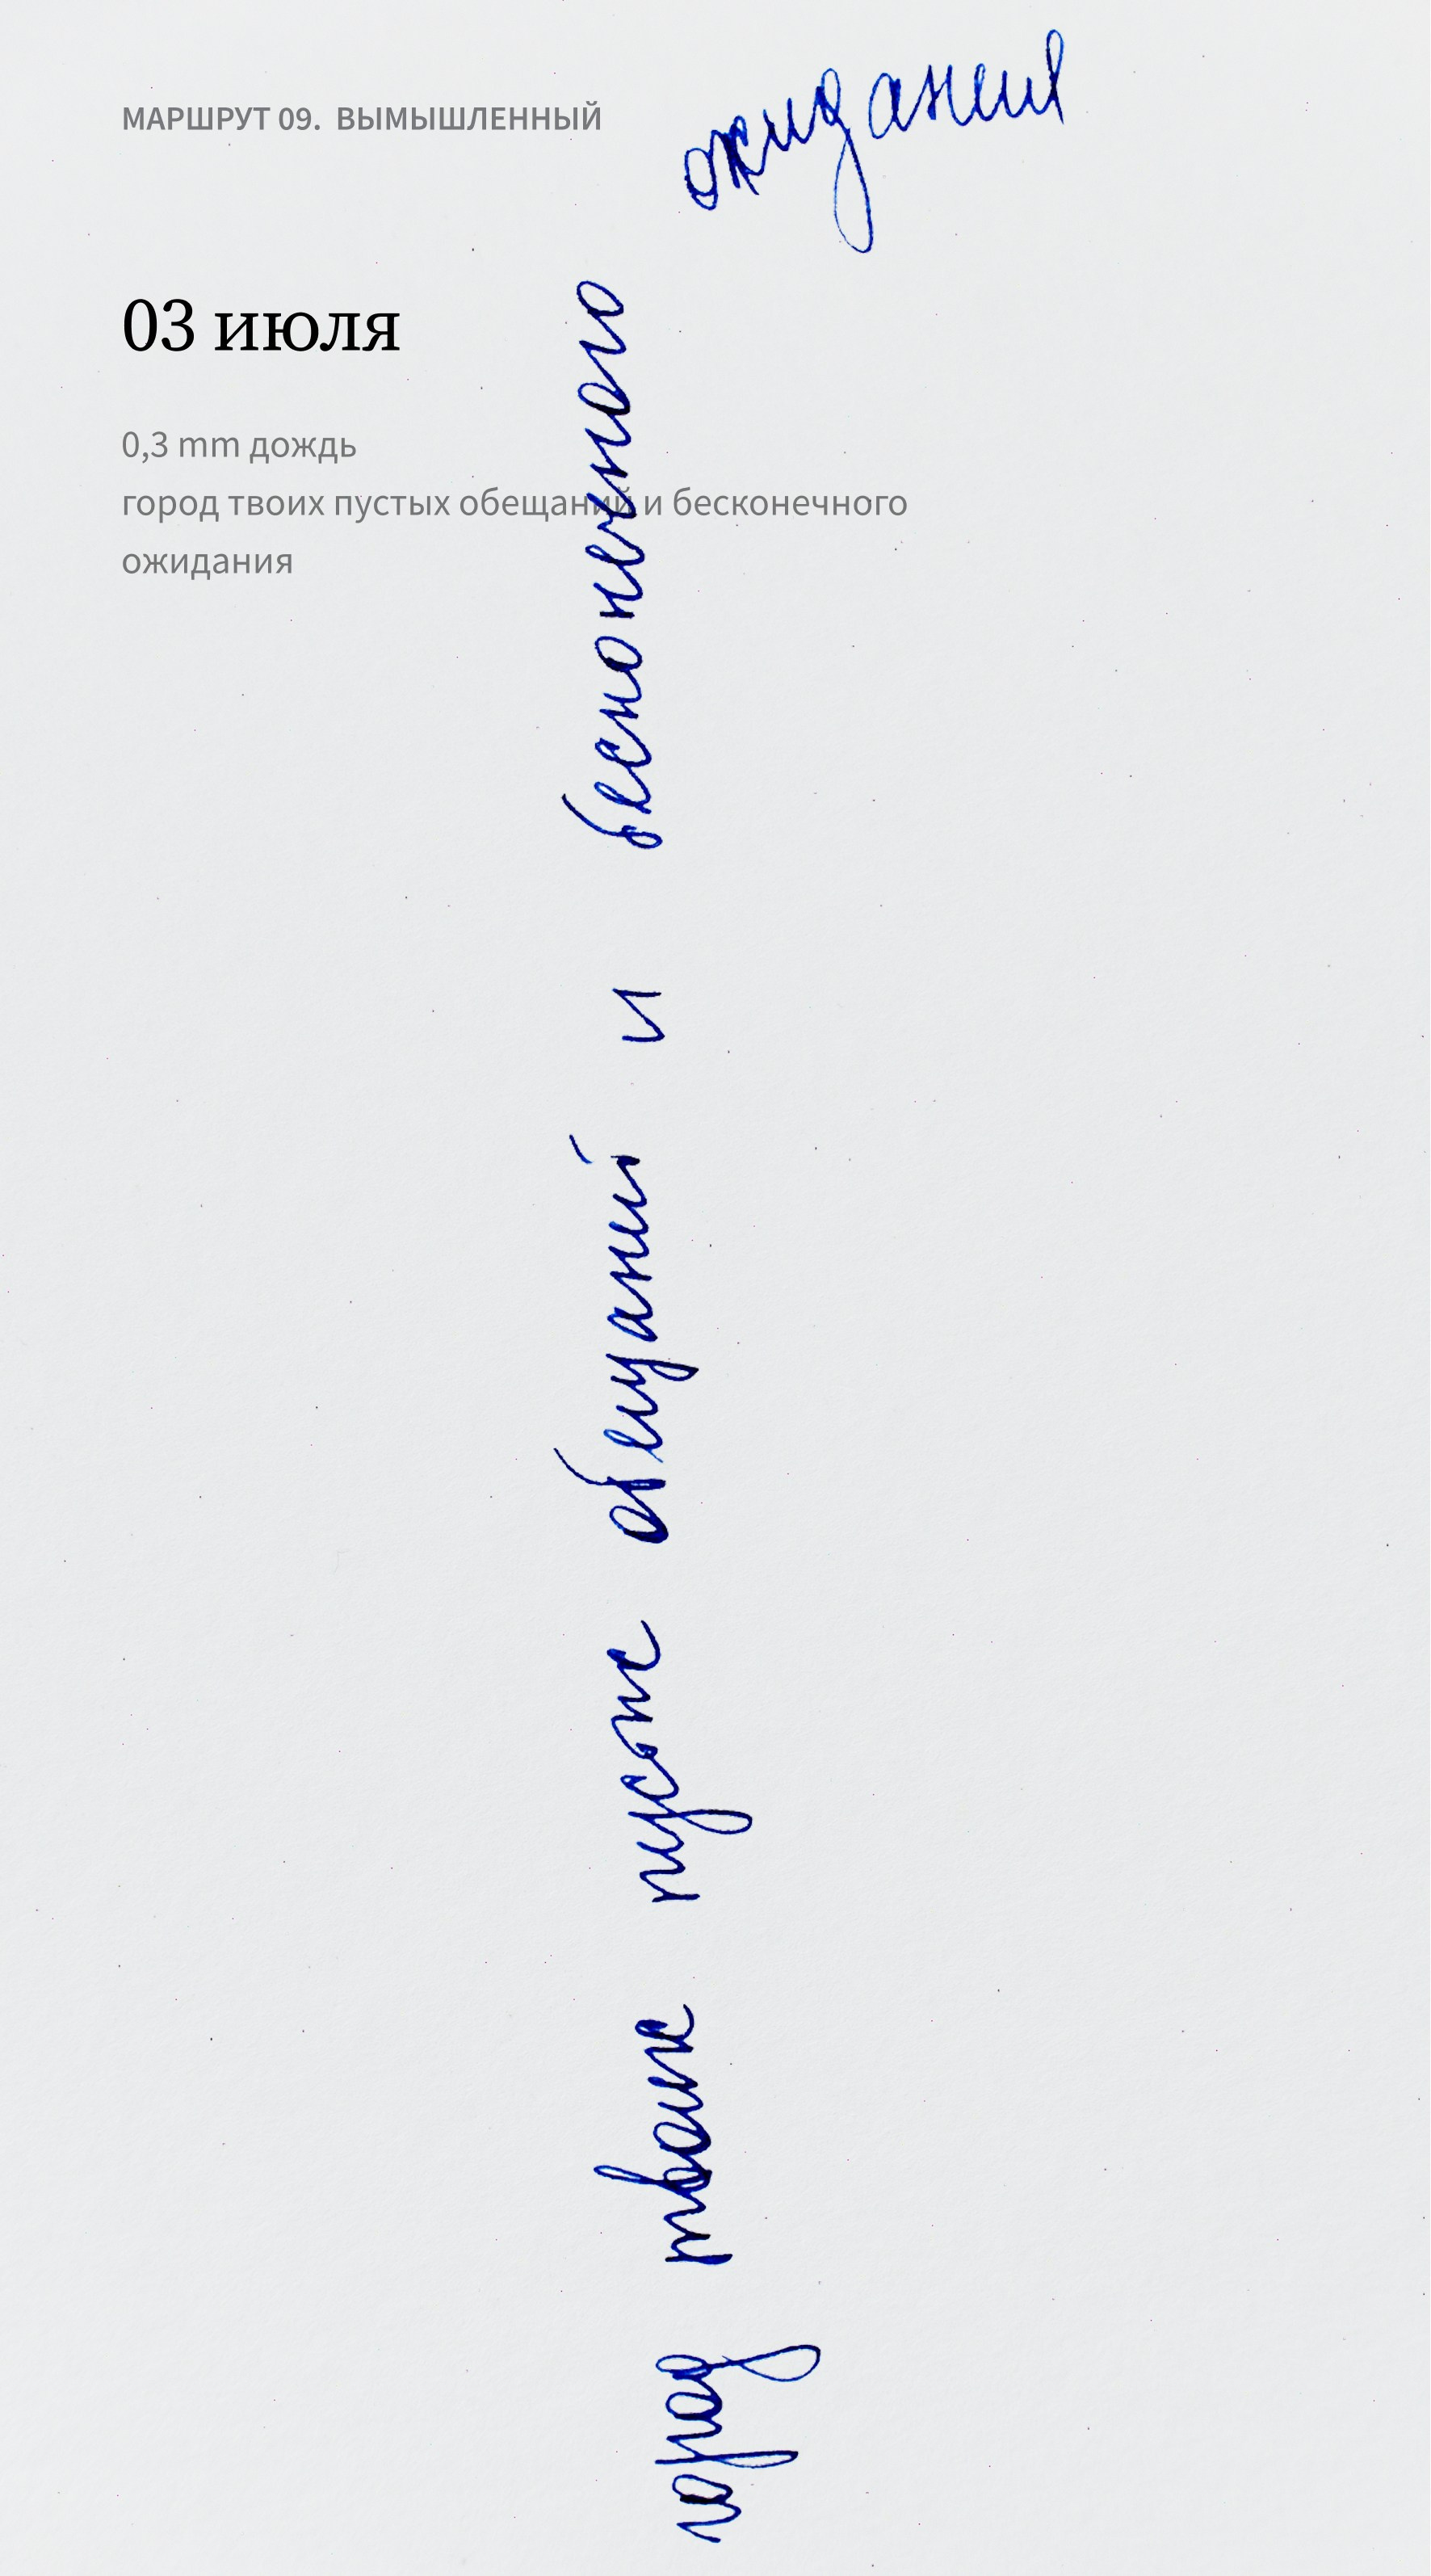 МАРШРУТ 09. ВЫМЫШЛЕННЫЙ
03 июля
0,3 mm дождь
город твоих пустых обещаний и бесконечного
ожидания
город твоих пустых обещаний и бесконечного
ожидания